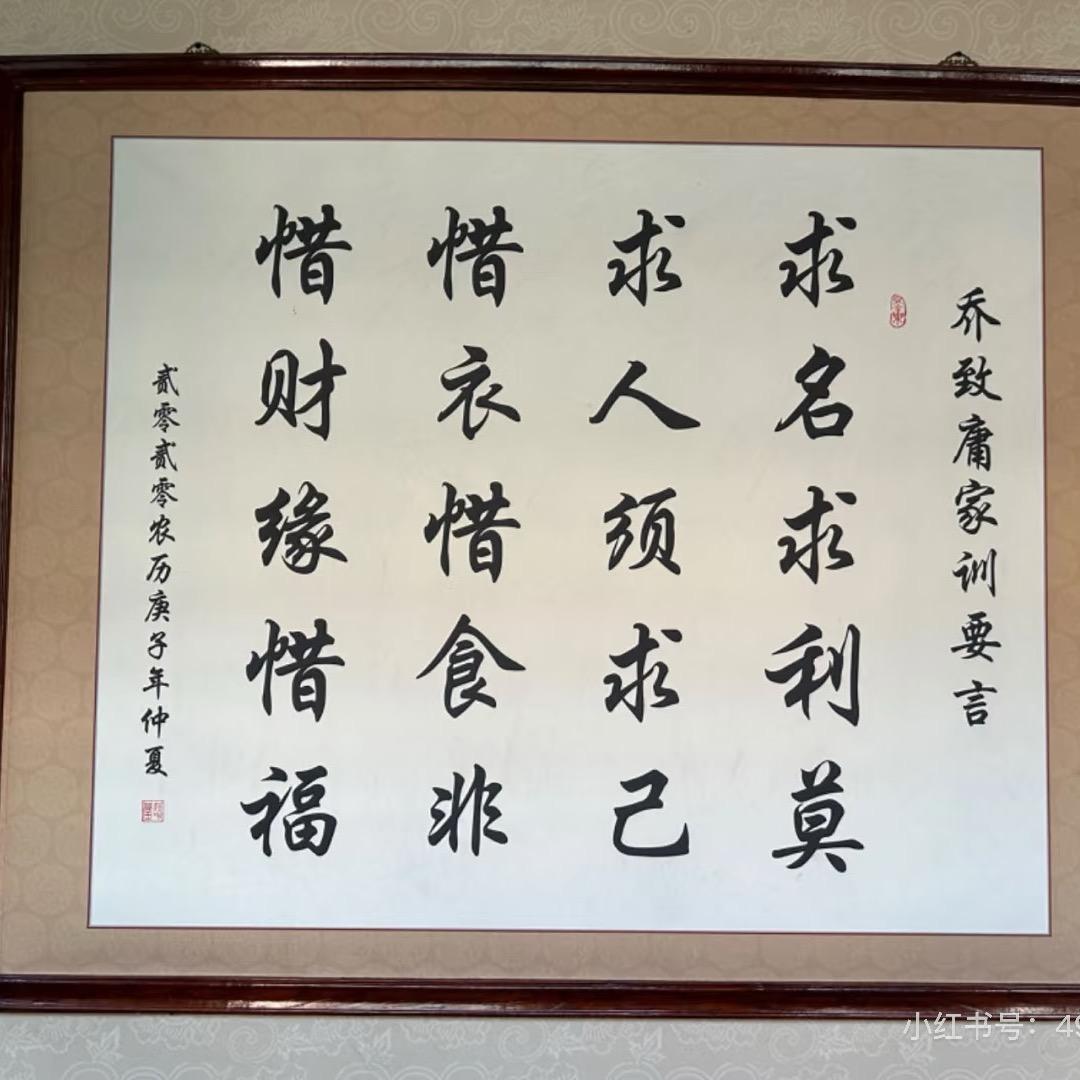 乔致庸家训要言
求名求利莫
求人须求己
惜衣惜食非
惜财缘惜福
贰零贰零农历庚子年仲夏
小红书号：49